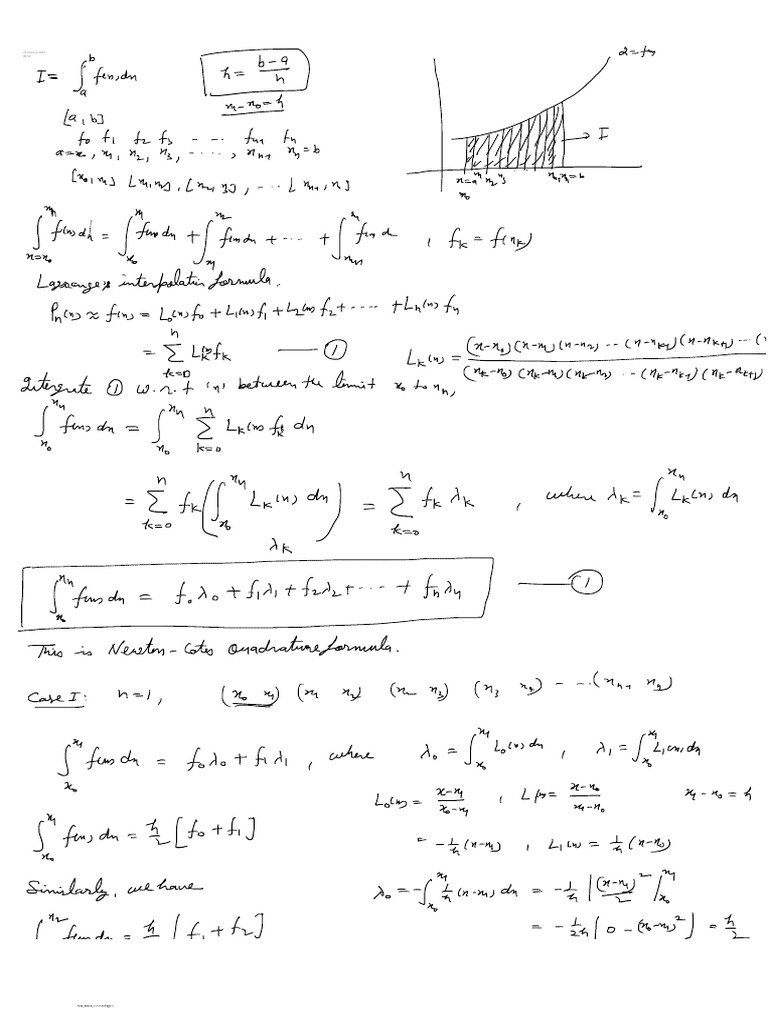 I = ∫_a^b f(x) dx
h = (b-a)/n
x₁-x₀=h
[a, b]
f₀ f₁ f₂ f₃ -- -- fₙ₋₁ fₙ
a=x₀, x₁, x₂, x₃, -----, xₙ₋₁ xₙ=b
[x₀,x₁] [x₁,x₂], [x₂,x₃], --- [xₙ₋₁, xₙ]
I
x=a x₁ x₂ x₃ xₙ₋₁ xₙ=b
x₀
∫_{x=x₀}^{xₙ} f(x)dx = ∫_{x₀}^{x₁} f(x)dx + ∫_{x₁}^{x₂} f(x)dx + --- + ∫_{xₙ₋₁}^{xₙ} f(x)dx , f_k = f(x_k)
Lagrange's interpolation formula.
Pₙ(x) ≈ f(x) = L₀(x)f₀ + L₁(x)f₁ + L₂(x)f₂ + ---- + Lₙ(x)fₙ
= Σ_{k=0}^{n} L_k(x) f_k —— ①
L_k(x) = (x-x₀)(x-x₁)(x-x₂)---(x-x_{k-1})(x-x_{k+1})---( / (x_k-x₀)(x_k-x₁)(x_k-x₂)---(x_k-x_{k-1})(x_k-x_{k+1})
Intergrate ① w.r.t 'x' between the limit x₀ to xₙ,
∫_{x₀}^{xₙ} f(x)dx = ∫_{x₀}^{xₙ} Σ_{k=0}^{n} L_k(x) f_k dx
= Σ_{k=0}^{n} f_k (∫_{x₀}^{xₙ} L_k(x) dx) = Σ_{k=0}^{n} f_k λ_k , where λ_k = ∫_{x₀}^{xₙ} L_k(x) dx
λ_k
∫_{x₀}^{xₙ} f(x)dx = f₀λ₀ + f₁λ₁ + f₂λ₂ + --- + fₙλₙ —— ①
This is Newton-Cotes Quadrature formula.
Case I: n=1, (x₀ x₁) (x₁ x₂) (x₂ x₃) (x₃ x₄) - --(xₙ₋₁ xₙ)
∫_{x₀}^{x₁} f(x)dx = f₀λ₀ + f₁λ₁ , where λ₀ = ∫_{x₀}^{x₁} L₀(x)dx , λ₁ = ∫_{x₀}^{x₁} L₁(x)dx
L₀(x) = (x-x₁)/(x₀-x₁) , L₁(x) = (x-x₀)/(x₁-x₀) x₁-x₀ = h
∫_{x₀}^{x₁} f(x)dx = h/2 [f₀+f₁]
= -1/h (x-x₁) , L₁(x) = 1/h (x-x₀)
Similarly, we have
λ₀ = -∫_{x₀}^{x₁} 1/h (x-x₁) dx = -1/h |(x-x₁)²/2|_{x₀}^{x₁}
∫^{x₂} f(x)dx = h/ [f₁+f₂]
= -1/2h [0 - (x₀-x₁)²] = h/2